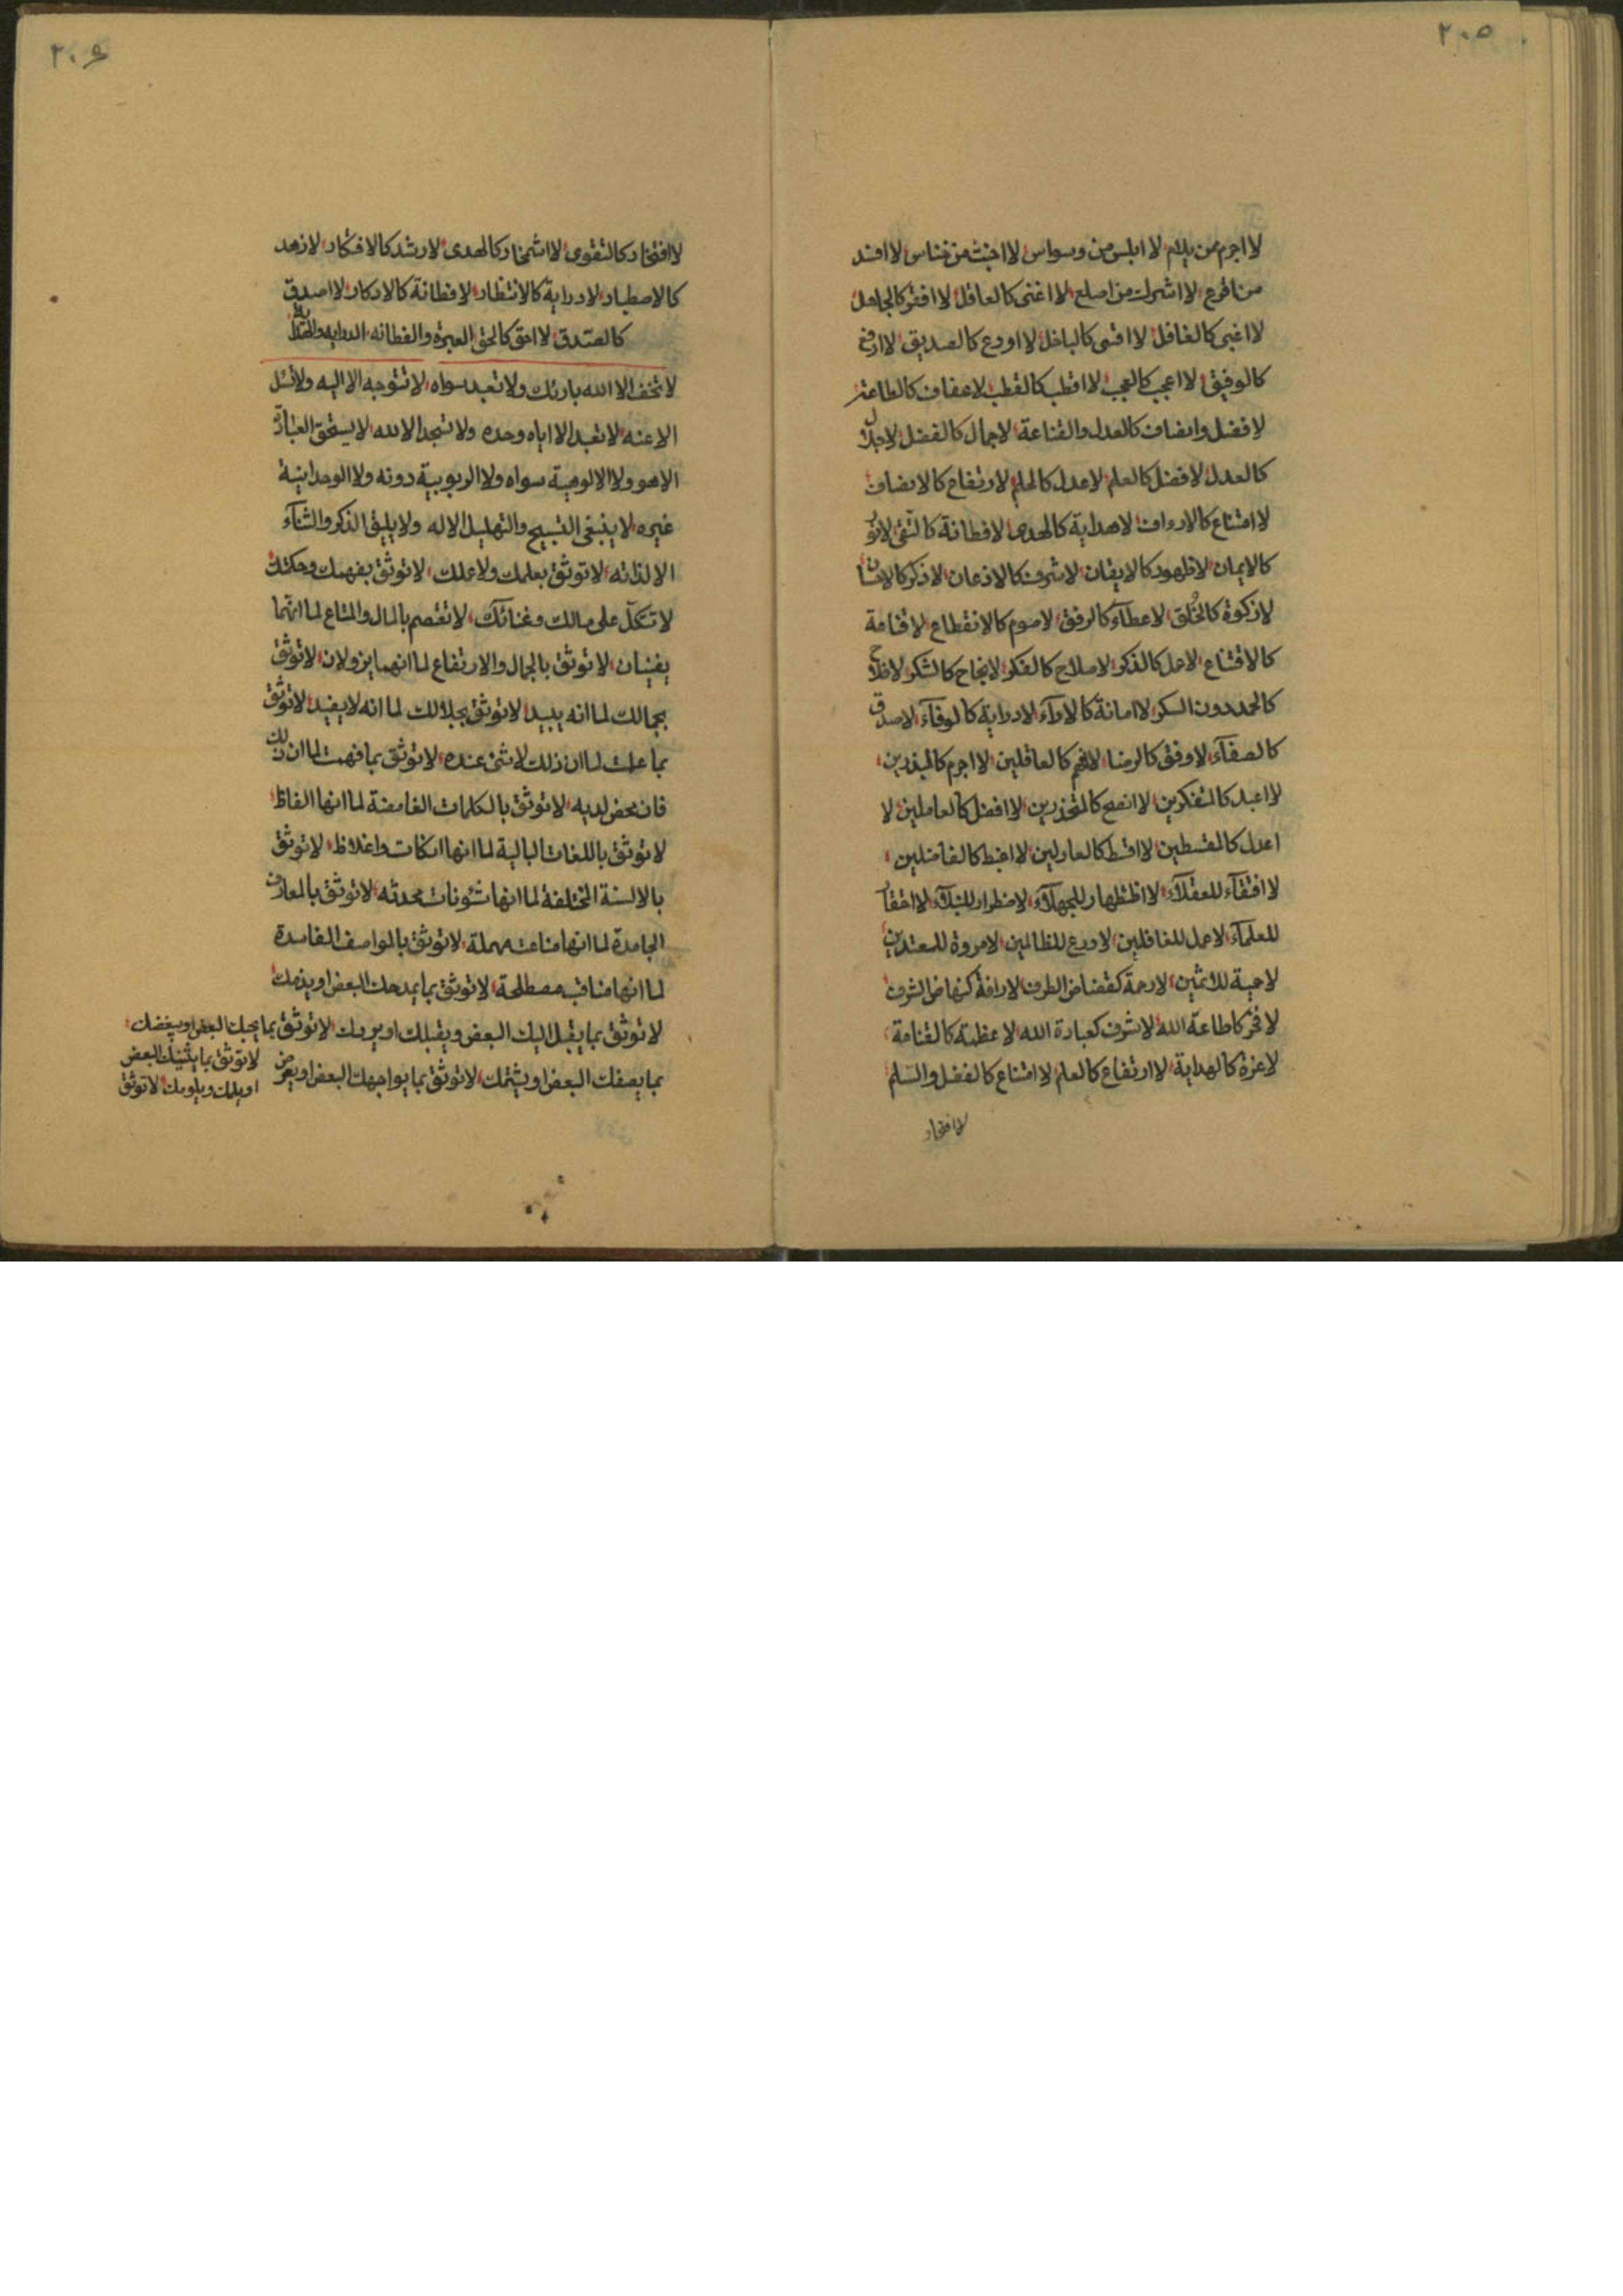 ٢٠٥
لا اجرم من بلام لا ابلس من وسواس لا اخبث من خناس لا افسد
من اقرع لا اشرك من اصلع لا اغنى كالعاقل لا افقر كالجاهل
لا اغبى كالغافل لا اقسى كالباخل لا اودع كالصديق لا ارفع
كالوفيق لا اعجب كالعجب لا اقطب كالقطب لا عفاف كالطاعة
لا فضل وانصاف كالعدل والقناعة لا جمال كالفضل لا جلال
كالعدل لا فضل كالعلم لا عدل كالحلم لا ارتفاع كالانصاف
لا امتناع كالارداف لا هداية كالهدى لا فطانة كالتقى لا نور
كالايمان لا ظهور كالايقان لا شرف كالاذعان لا ذكر كالاتيان
لا زكوة كالخلق لا عطآء كالرفق لا صوم كالانقطاع لا قناعة
كالاقتناع لا عمل كالذكر لا صلاح كالفكر لا نجاح كالشكر لا فلاح
كالحمد دون السكر لا امانة كالادآء لا دراية كالوفآء لا صدق
كالصفآء لا وفق كالرضا لا فهم كالعاقلين لا اجرم كالمبذرين
لا اعبد كالمتفكرين لا انصح كالمتحذرين لا افضل كالعاملين لا
اعدل كالمقسطين لا اقسط كالعادلين لا اغبط كالفاضلين
لا افتقآء للعقلآء لا اظتظهار للجهلآء لا اضطرار للنبلآء لا افتقار
للعلمآء لا عمل للغافلين لا ورع للظالمين لا مروة للمعتدين
لا حمية للاثمين لا رحمة كقضاض الطرف لا رافة كنهاض الشرف
لا فخر كاطاعة الله لا شرف كعبادة الله لا عظمة كالقناعة
لا عزة كالهداية لا ارتفاع كالعلم لا امتناع كالفضل والسلم
لا افتخار
٢٠٦
لا افتخار كالتقوى لا اشمخار كالهدى لا رشد كالافتكار لا زهد
كالاصطبار لا دراية كالانتظار لا فطانة كالادكار لا اصدق
كالصدق لا احق كالحق العبرة والفطانه الدرايه
لا تخف الا الله بارئك ولا تعبد سواه لا تتوجه الا اليه ولا تسئل
الا عنه لا تعبد الا اياه وحده ولا تسجد الا لله لا يستحق العبادة
الا هو ولا الالوهية سواه ولا الربوبية دونه ولا الوحدانية
غيره لا ينبغى التسبيح والتهليل الا له ولا يليق الذكر والثنآء
الا لذاته لا توثق بعلمك ولا عملك لا توثق بفهمك وحكمتك
لا تتكل على مالك وغنائك لا تعتصم بالمال والمتاع لما انهما
يفنيان لا توثق بالجمال والارتفاع لما انهما يزولان لا توثق
بجمالك لما انه يبيد لا توثق بجلالك لما انه لا يفيد لا توثق
بما علمت لما ان ذلك لا شئ عنده لا توثق بما فهمت لما ان ذلك
فان محض لديه لا توثق بالكلمات الغامضة لما انها الفاظ
لا توثق باللغات البالية لما انها اتكات واغلاظ لا توثق
بالالسنة المختلفة لما انها شئونات محدثه لا توثق بالمعارف
الجامدة لما انها صناعت مهملة لا توثق بالمواصف الفاسدة
لما انها مناقب مصطلحة لا توثق بما يمدحك البعض او يذمك
لا توثق بما يقبل اليك البعض ويقبلك او يردك لا توثق بما يحبك البعض او يبغضك
بما يصفك البعض او يشتمك لا توثق بما يواجهك البعض او يعرض لا توثق بما يثنيك البعض
او يلمك ويلومك لا توثق